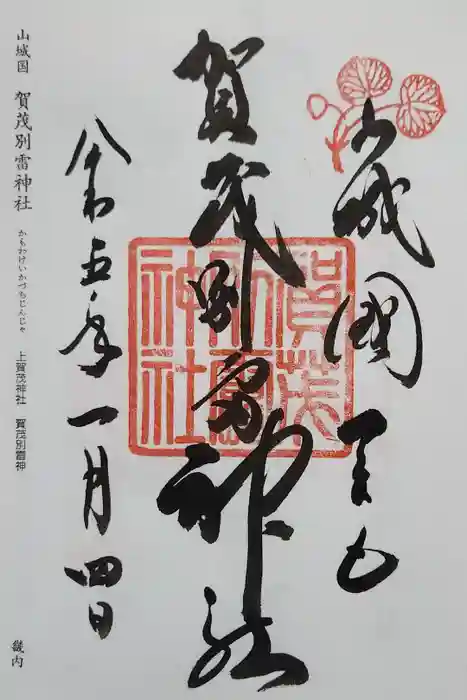 山城國
賀茂別雷神社
賀茂
別雷
神社
令和五年一月四日
山城国 賀茂別雷神社 かもわけいかづちじんじゃ 上賀茂神社 賀茂別雷神 畿内